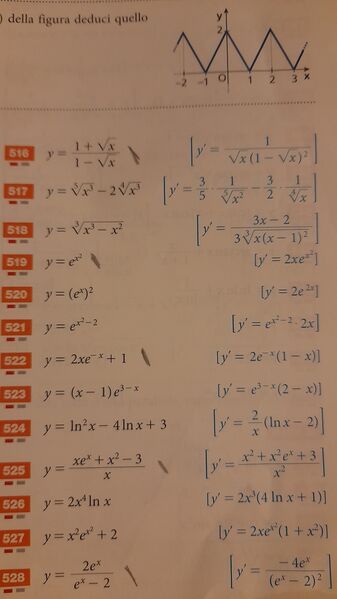 ) della figura deduci quello
y
2
-2 -1 O 1 2 3 x
516 y = \frac{1 + \sqrt{x}}{1 - \sqrt{x}} [y' = \frac{1}{\sqrt{x}(1 - \sqrt{x})^2}]
517 y = \sqrt[5]{x^3} - 2\sqrt[4]{x^3} [y' = \frac{3}{5} · \frac{1}{\sqrt[5]{x^2}} - \frac{3}{2} · \frac{1}{\sqrt[4]{x}}]
518 y = \sqrt[3]{x^3 - x^2} [y' = \frac{3x - 2}{3\sqrt[3]{x(x - 1)^2}}]
519 y = e^{x^2} [y' = 2xe^{x^2}]
520 y = (e^x)^2 [y' = 2e^{2x}]
521 y = e^{x^2 - 2} [y' = e^{x^2 - 2} · 2x]
522 y = 2xe^{-x} + 1 [y' = 2e^{-x}(1 - x)]
523 y = (x - 1)e^{3 - x} [y' = e^{3 - x}(2 - x)]
524 y = ln^2 x - 4 ln x + 3 [y' = \frac{2}{x}(ln x - 2)]
525 y = \frac{xe^x + x^2 - 3}{x} [y' = \frac{x^2 + x^2e^x + 3}{x^2}]
526 y = 2x^4 ln x [y' = 2x^3(4 ln x + 1)]
527 y = x^2e^{x^2} + 2 [y' = 2xe^{x^2}(1 + x^2)]
528 y = \frac{2e^x}{e^x - 2} [y' = \frac{-4e^x}{(e^x - 2)^2}]